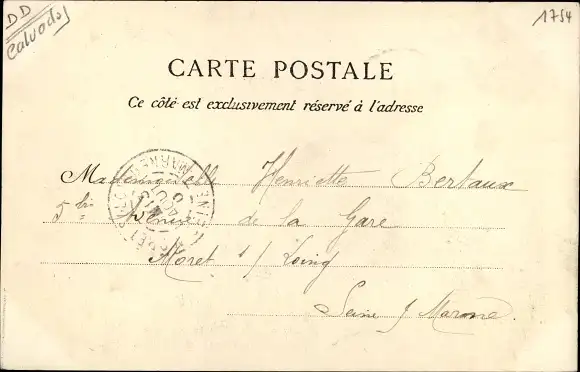 DD
Calvados
1754
CARTE POSTALE
Ce côté est exclusivement réservé à l'adresse
Mademoiselle Henriette Bertaux
5 bis Avenue de la Gare
Moret s/ Loing
Seine & Marne.